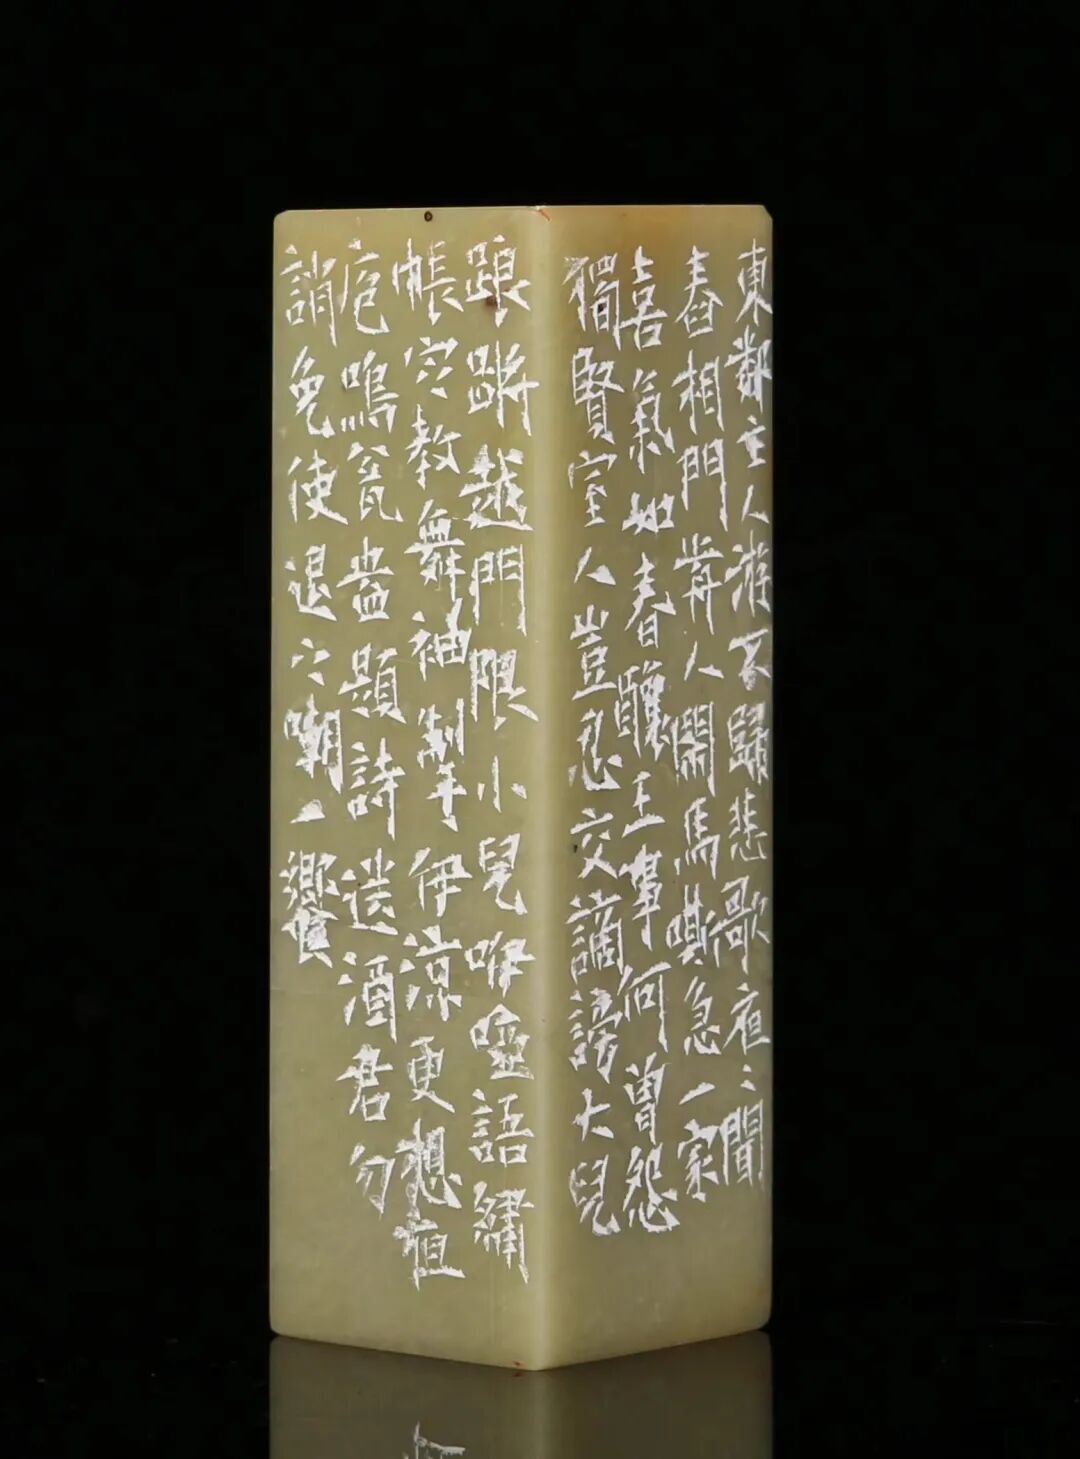 東鄰主人游不歸悲歌夜〻聞
舂相門前人鬧馬嘶急一家
喜氣如春釀王事何曾怨
獨賢室人豈忍交謫謗大兒
踉蹡越門限小兒咿啞語繡
帳定教舞袖掣伊涼更想夜
庖鳴瓮盎題詩送酒君勿
誚免使退之嘲一饗